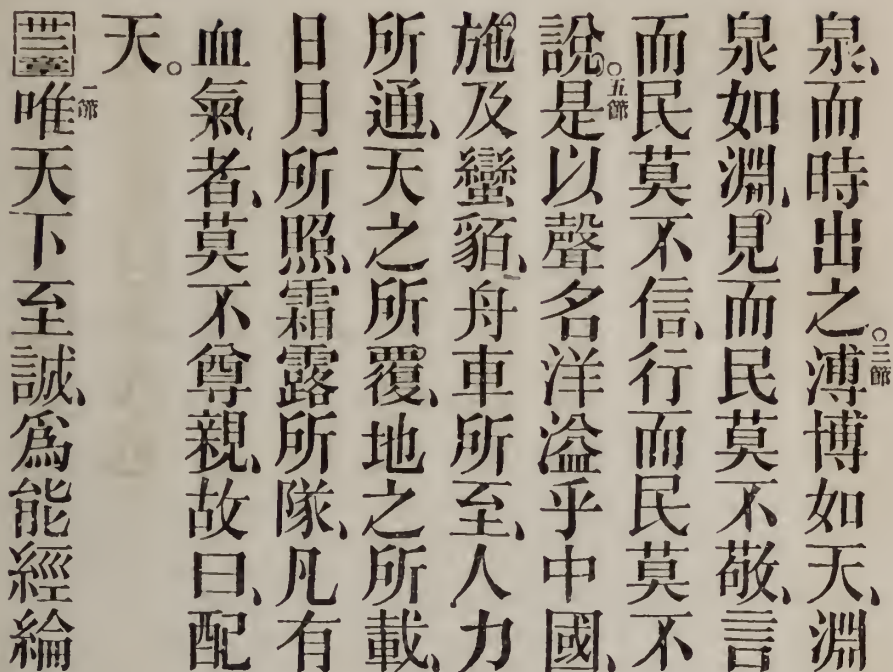 泉、而時出之。○三節溥博如天、淵
泉如淵、見而民莫不敬、言
而民莫不信、行而民莫不
說。○五節是以聲名洋溢乎中國、
施及蠻貊、舟車所至、人力
所通、天之所覆、地之所載、
日月所照、霜露所隊、凡有
血氣者、莫不尊親、故曰、配
天。
卅二章一節唯天下至誠、爲能經綸